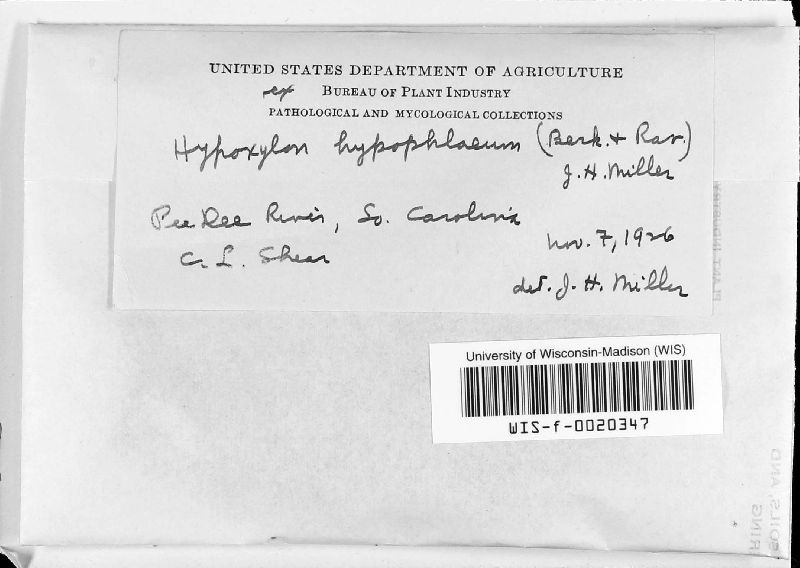 UNITED STATES DEPARTMENT OF AGRICULTURE
ex BUREAU OF PLANT INDUSTRY
PATHOLOGICAL AND MYCOLOGICAL COLLECTIONS
Hypoxylon hypophlaeum (Berk. & Rav.)
J. H. Miller
Pee Dee River, So. Carolina
C. L. Shear
Nov. 7, 1926
det. J. H. Miller
PLANT INDUSTRY
University of Wisconsin-Madison (WIS)
WIS-f-0020347
SOILS, AND
RING